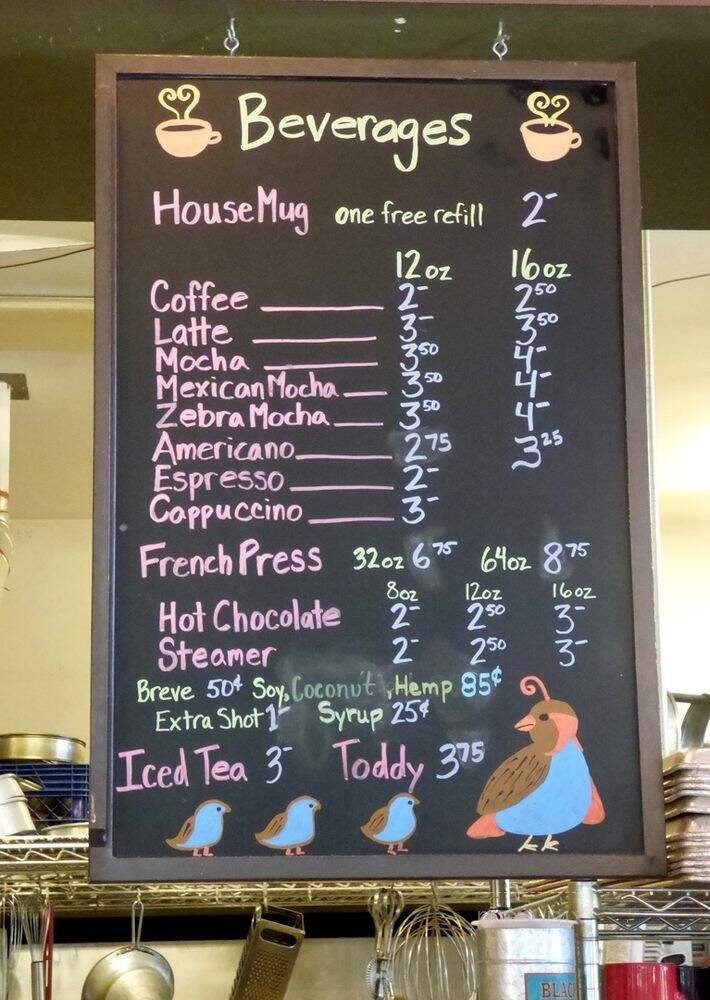 Beverages
House Mug one free refill 2-
12 oz 16 oz
Coffee 2- 2 50
Latte 3- 3 50
Mocha 3 50 4-
Mexican Mocha 3 50 4-
Zebra Mocha 3 50 4-
Americano 2 75 3 25
Espresso 2-
Cappuccino 3-
French Press 32oz 6 75 64oz 8 75
8oz 12oz 16oz
Hot Chocolate 2- 2 50 3-
Steamer 2- 2 50 3-
Breve 50¢ Soy, Coconut, Hemp 85¢
Extra Shot 1- Syrup 25¢
Iced Tea 3- Toddy 3 75